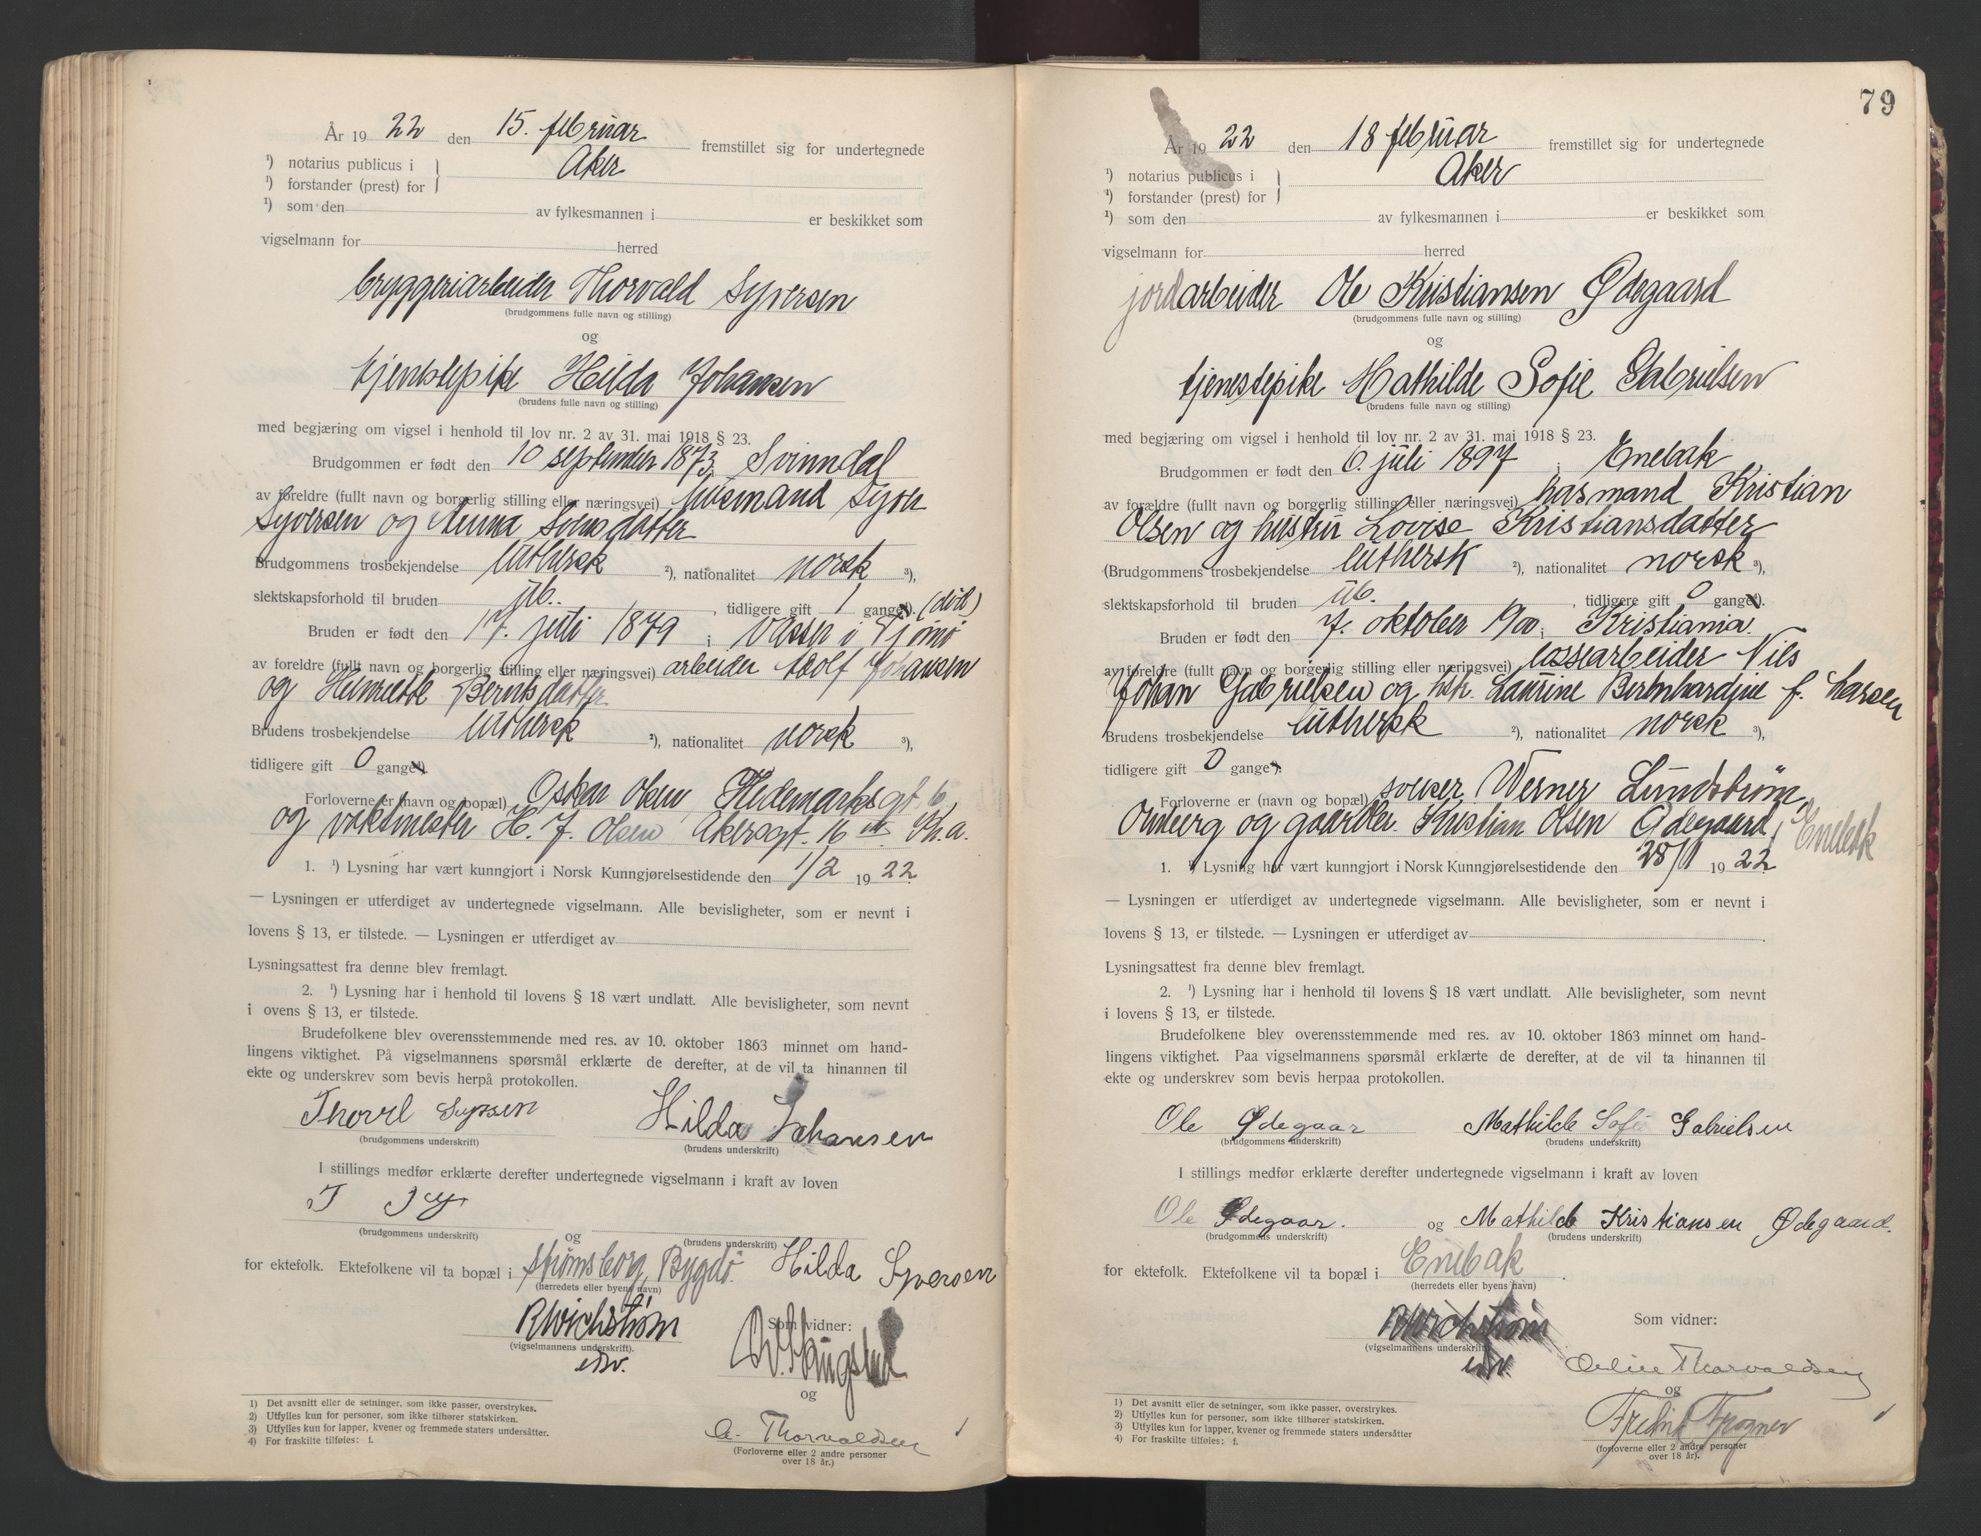 År 1922 den 15. februar fremstillet sig for undertegnede
¹) notarius publicus i Aker
¹) forstander (prest) for
¹) som den av fylkesmannen i er beskikket som
vigselmann for herred
bryggeriarbeider Thorvald Syversen
(brudgommens fulle navn og stilling)
og
tjenestepike Hilda Johansen
(brudens fulle navn og stilling)
med begjæring om vigsel i henhold til lov nr. 2 av 31. mai 1918 § 23.
Brudgommen er født den 10 september 1873; Svinndal
av foreldre (fullt navn og borgerlig stilling eller næringsvei) husmand Syver
Syversen og Anna
Brudgommens trosbekjendelse luthersk ²), nationalitet norsk ³),
slektskapsforhold til bruden ub. , tidligere gift 1 gange⁴). (död)
Bruden er født den 17. juli 1879; i Tjömö
av foreldre (fullt navn og borgerlig stilling eller næringsvei) arbeider Adolf Johansen
og Henriette Berntsdatter
Brudens trosbekjendelse luthersk ²), nationalitet norsk ³),
tidligere gift 0 gange⁴).
Forloverne er (navn og bopæl) Oskar Olsen Hedemarksgt. 6
og vaktmester H. J. Olsen Akersgt. 16 Kr.a.
1. ¹) Lysning har vært kunngjort i Norsk Kunngjørelsestidende den 1/2 1922
— Lysningen er utferdiget av undertegnede vigselmann. Alle bevisligheter, som er nevnt i
lovens § 13, er tilstede. — Lysningen er utferdiget av
Lysningsattest fra denne blev fremlagt.
2. ¹) Lysning har i henhold til lovens § 18 vært undlatt. Alle bevisligheter, som nevnt
i ovens § 13, er tilstede.
Brudefolkene blev overensstemmende med res. av 10. oktober 1863 minnet om hand-
lingens viktighet. På vigselmannens spørsmål erklærte de derefter, at de vil ta hinannen til
ekte og underskrev som bevis herpå protokollen.
Thorvl Syvesen Hilda Johansen
(brudgommens underskrift) (brudens underskrift)
I stillings medfør erklærte derefter undertegnede vigselmann i kraft av loven
T Sy
(brudgommens underskrift) og (brudens underskrift)
for ektefolk. Ektefolkene vil ta bopæl i Strømsborg, Bygdö. Hilda Syversen
(herredets eller byens navn)
RWichstrøm Som vidner:
(vigselmannens underskrift).
og
A. Thorvaldsen
(Forloverne eller 2 andre personer
over 18 år.)
1) Det avsnitt eller de setninger, som ikke passer, overstrykes.
2) Utfylles kun for personer, som ikke tilhører statskirken.
3) Utfylles kun for lapper, kvener og fremmede staters undersåtter.
4) For fraskilte tilføies: f.
79
År 1922 den 18 februar fremstillet sig for undertegnede
¹) notarius publicus i Aker
¹) forstander (prest) for
¹) som den av fylkesmannen i er beskikket som
vigselmann for herred
jordarbeider Ole Kristiansen Ødegaard
(brudgommens fulle navn og stilling)
og
tjenestepike Mathilde Sofie Gabrielsen
(brudens fulle navn og stilling)
med begjæring om vigsel i henhold til lov nr. 2 av 31. mai 1918 § 23.
Brudgommen er født den 6. juli 1897; Enebak
av forældre (fullt navn og borgerlig stilling eller næringsvei) husmand Kristian
Olsen og hustru Lovise Kristiansdatter
(Brudgommens trosbekjendelse luthersk ²), nationalitet norsk ³),
slektskapsforhold til bruden ub. , tidligere gift 0 gange⁴).
Bruden er født den 7. oktober 1900; Kristiania.
av foreldre (fullt navn og borgerlig stilling eller næringsvei) lossearbeider Nils
Johan Gabrielsen og hstr. Laurine Bernhardine f. Larsen
Brudens trosbekjendelse luthersk ²), nationalitet norsk ³),
tidligere gift 0 gange⁴).
Forloverne er (navn og bopæl) Werner Lundström,
og gaardbr. Kristian Olsen Ødegaard, Enebak
1. ¹) Lysning har vært kunngjort i Norsk Kunngjørelsestidende den 28/1 1922
— Lysningen er utferdiget av undertegnede vigselmann. Alle bevisligheter, som er nevnt i
lovens § 13, er tilstede. — Lysningen er utferdiget av
Lysningsattest fra denne blev fremlagt.
2. ¹) Lysning har i henhold til lovens § 18 vært undlatt. Alle bevisligheter, som nevnt
i lovens § 13, er tilstede.
Brudefolkene blev overensstemmende med res. av 10. oktober 1863 minnet om hand-
lingens viktighet. Paa vigselmannens spørsmål erklærte de derefter, at de vil ta hinannen til
ekte og underskrev som bevis herpaa protokollen.
Ole Ødegaar Mathilde Sofie Gabrielsen
(brudgommens underskrift) (brudens underskrift)
I stillings medfør erklærte derefter undertegnede vigselmann i kraft av loven
Ole Ødegaar. og Mathilde Kristiansen Ødegaard.
(brudgommens underskrift) (brudens underskrift)
for ektefolk. Ektefolkene vil ta bopæl i Enebak
(herredets eller byens navn)
RWichstrøm Som vidner:
(vigselmannens underskrift)
Thorvaldsen
og
Fredrik Frogner
(forloverne eller 2 andre personer
over 18 år).
1) Det avsnitt eller de setninger, som ikke passer, overstrykes.
2) Utfylles kun for personer, som ikke tilhører statskirken.
3) Utfylles kun for lapper, kvener og fremmede staters undersåtter
4) For fraskilte tilføies: f.